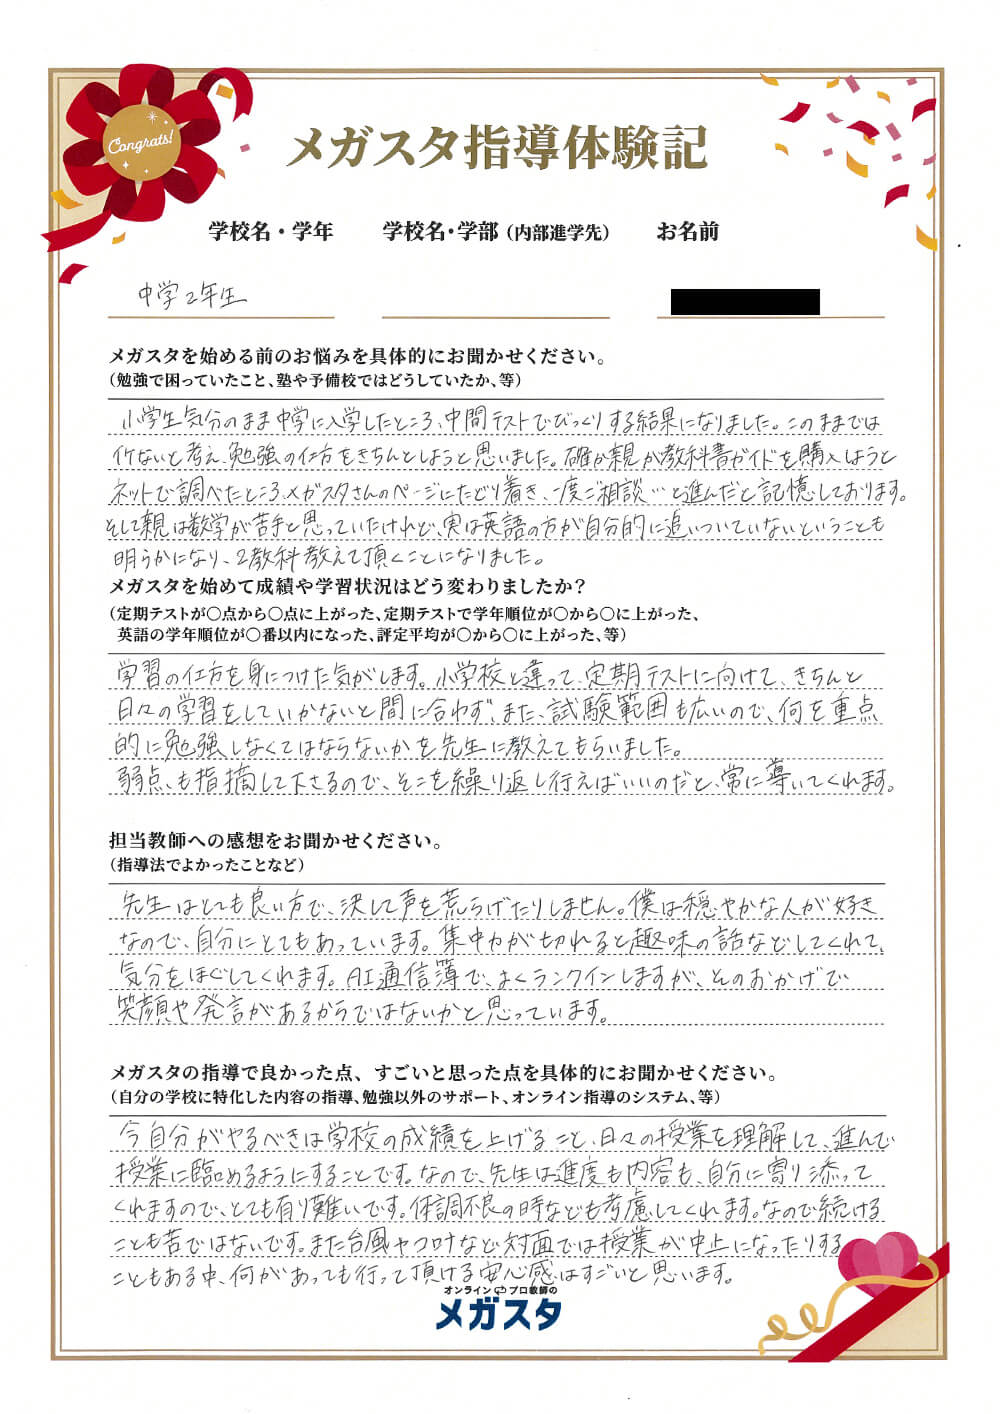 Congrats!
メガスタ指導体験記
学校名・学年 学校名・学部(内部進学先) お名前
中学2年生
メガスタを始める前のお悩みを具体的にお聞かせください。
(勉強で困っていたこと、塾や予備校ではどうしていたか、等)
小学生気分のまま中学に入学したところ、中間テストでびっくりする結果になりました。このままでは
イケないと考え、勉強の仕方をきちんとしようと思いました。確か親が教科書ガイドを購入しようと
ネットで調べたところ、メガスタさんのページにたどり着き、一度ご相談…と進んだと記憶しております。
そして親は数学が苦手と思っていたけれど、実は英語の方が自分的に追いついていないということも
明らかになり、2教科教えて頂くことになりました。
メガスタを始めて成績や学習状況はどう変わりましたか?
(定期テストが〇点から〇点に上がった、定期テストで学年順位が〇から〇に上がった、
英語の学年順位が〇番以内になった、評定平均が〇から〇に上がった、等)
学習の仕方を身につけた気がします。小学校と違って、定期テストに向けて、きちんと
日々の学習をしていかないと間に合わず、また、試験範囲も広いので、何を重点
的に勉強しなくてはならないかを先生に教えてもらいました。
弱点、も指摘して下さるので、そこを繰り返し行えばいいのだと、常に導いてくれます。
担当教師への感想をお聞かせください。
(指導法でよかったことなど)
先生はとても良い方で、決して声を荒らげたりしません。僕は穏やかな人が好き
なので、自分にとてもあっています。集中力が切れると趣味の話などしてくれて、
気分をほぐしてくれます。AI通信簿で、よくランクインしますが、そのおかげで
笑顔や発言があるからではないかと思っています。
メガスタの指導で良かった点、すごいと思った点を具体的にお聞かせください。
(自分の学校に特化した内容の指導、勉強以外のサポート、オンライン指導のシステム、等)
今自分がやるべきは学校の成績を上げること、日々の授業を理解して、進んで
授業に臨めるようにすることです。なので、先生は進度も内容も、自分に寄り添って
くれますので、とても有り難いです。体調不良の時なども考慮してくれます。なので続ける
ことも苦ではないです。また台風やコロナなど対面では授業が中止になったりする
こともある中、何があっても行って頂ける安心感はすごいと思います。
オンライン プロ教師の
メガスタ